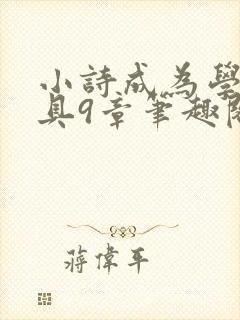 小詩成為學
具9章筆趣閣
蔣偉平